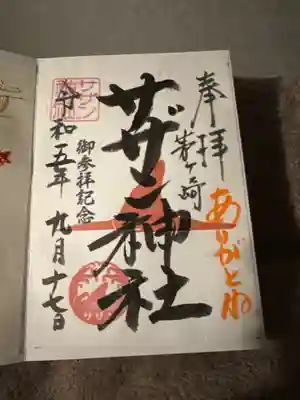 奉拝
茅ヶ崎
ありがとね
サザン神社
御参拝記念
令和五年 九月十七日